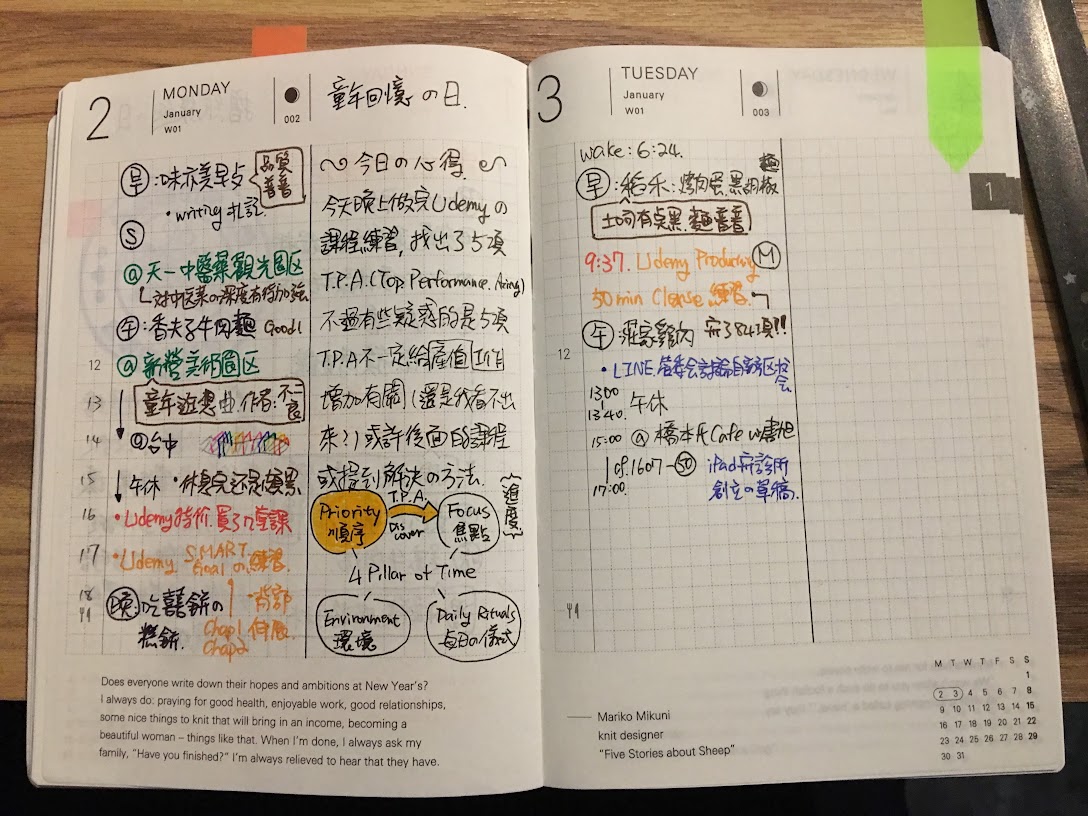 2
MONDAY
January
W01
002
童年回憶 の日.
早:味亦美早点
品質
普普
•writing 札記.
S
@天一中醫藥觀光園区
午:香夫子牛肉麵 Good!
12 @新營美術園区
13
童年遊思曲 作者:不二良
14 @台中
15 午休 •休息完还是很累
16 •Udemy特价.買了7堂課
17 •Udemy S.M.A.R.T. Goal の練習.
18
晚:吃囍餅の
糕餅.
•背部
Chap1 伸展
Chap2
~今日の心得~
今天晚上做完Udemyの
課程練習,找出了5項
T.P.A.(Top Performance
不過有些疑惑的是5項
T.P.A不一定給產值工作
增加有關(還是我看不出
來?)或許後面的課程
或提到解決の方法.
Priority
順序
T.P.A.
Discover
Focus
焦點
進度
4 Pillar of Time
Environment
環境
Daily Rituals
每日の儀式
Does everyone write down their hopes and ambitions at New Year's?
I always do: praying for good health, enjoyable work, good relationships,
some nice things to knit that will bring in an income, becoming a
beautiful woman – things like that. When I'm done, I always ask my
family, "Have you finished?" I'm always relieved to hear that they have.
3
TUESDAY
January
W01
003
1
wake: 6:24.
早:烤肉蛋.黑胡椒麵
吐司有点黑.麵普普
9:37. Udemy M
30 min Cleanse 練習.
午: 雞肉 寫了84項!!
12
•LINE
13:00
13:40. 午休
15:00 @橋本氏Cafe
cf.1607-50
17:00.
iPad寫診所
創立の草稿.
Mariko Mikuni
knit designer
"Five Stories about Sheep"
M T W T F S S
1
2 3 4 5 6 7 8
9 10 11 12 13 14 15
16 17 18 19 20 21 22
23 24 25 26 27 28 29
30 31